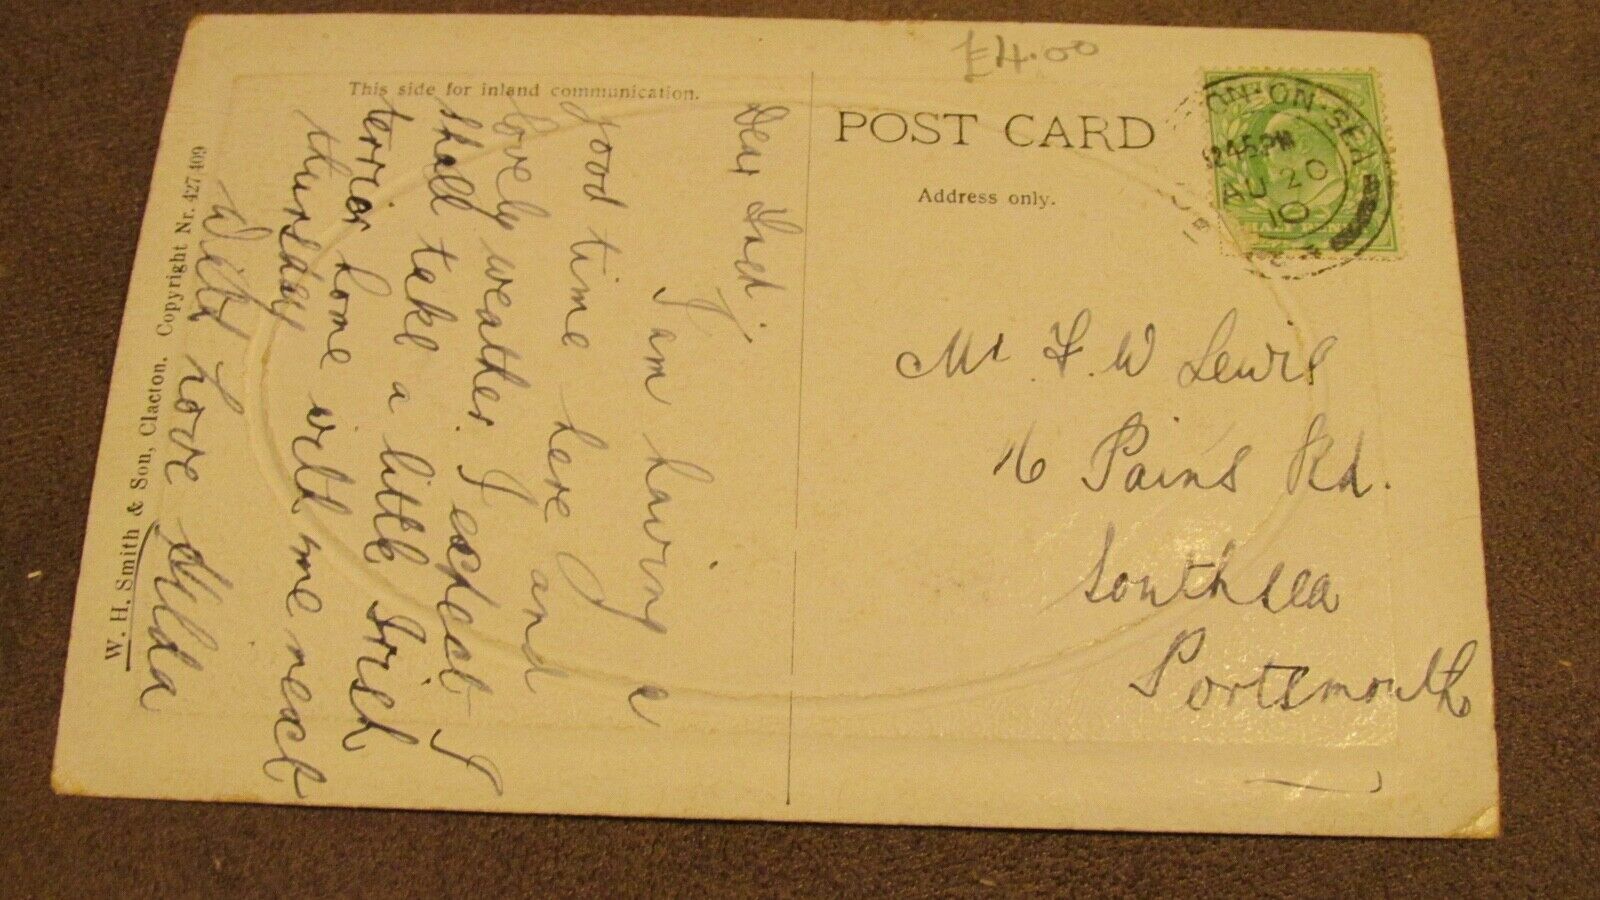 £4.00
This side for inland communication.
POST CARD
Address only.
ON-ON-SEA
1245PM
AU 20
10
Mr F. W Lewis
16 Pains Rd.
Southsea
Portsmouth
Dear Dad,
I am having a
good time here and
lovely weather. I expect I
shall take a little Irish
terrior home with me next
thursday
With Love Hilda
W. H. Smith & Son, Clacton. Copyright Nr. 427,409